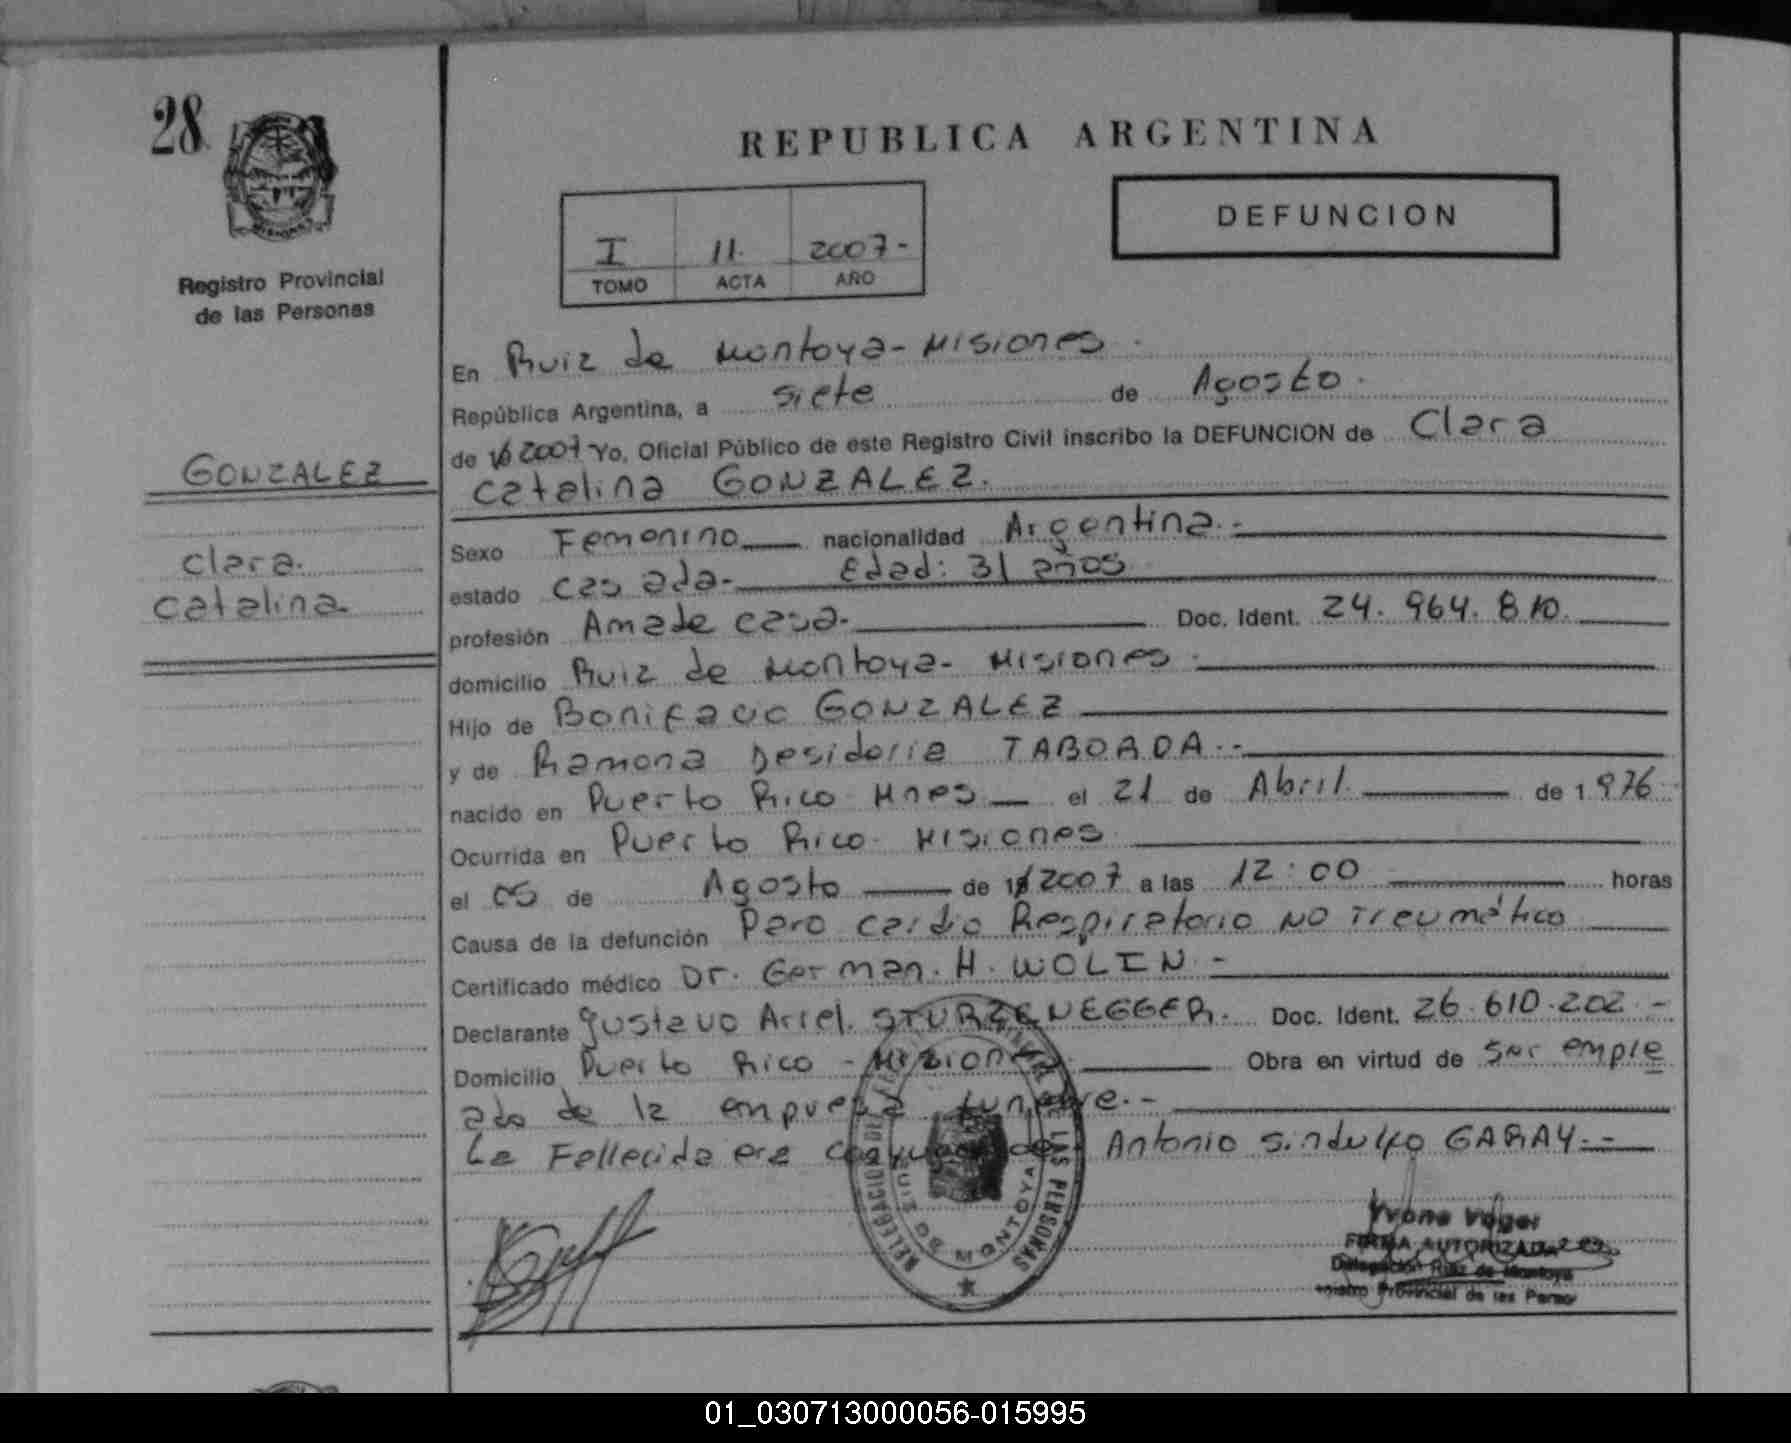 28
MISIONES
Registro Provincial
de las Personas
GONZALEZ
Clara.
Catalina.
REPUBLICA ARGENTINA
I 11. 2007-
TOMO ACTA AÑO
DEFUNCION
En Ruiz de Montoya - Misiones.
República Argentina, a siete de Agosto.
de 2007 Yo, Oficial Público de este Registro Civil inscribo la DEFUNCION de Clara
Catalina GONZALEZ.
Sexo Femenino nacionalidad Argentina.-
estado Casada.- Edad: 31 años
profesión Ama de casa.- Doc. Ident. 24.964.810.
domicilio Ruiz de Montoya - Misiones.
Hijo de Bonifacio GONZALEZ
y de Ramona Desideria TABORDA.-
nacido en Puerto Rico Mnes el 21 de Abril. de 1976
Ocurrida en Puerto Rico - Misiones
el 05 de Agosto de 2007 a las 12:00 horas
Causa de la defunción Paro Cardio Respiratorio NO Traumático
Certificado médico Dr. German. H. WOLIN.-
Declarante Gustavo Ariel. STURZENEGGER. Doc. Ident. 26.610.202.-
Domicilio Puerto Rico - Misiones Obra en virtud de Ser emple
ado de la empresa funebre.-
La Fallecida era conyuge de Antonio Sindulfo GARAY.-
DELEGACION DE LAS PERSONAS
RUIZ DE MONTOYA
FIRMA AUTORIZADA
Delegación Ruiz de Montoya
Provincial de las Perso
01_030713000056-015995